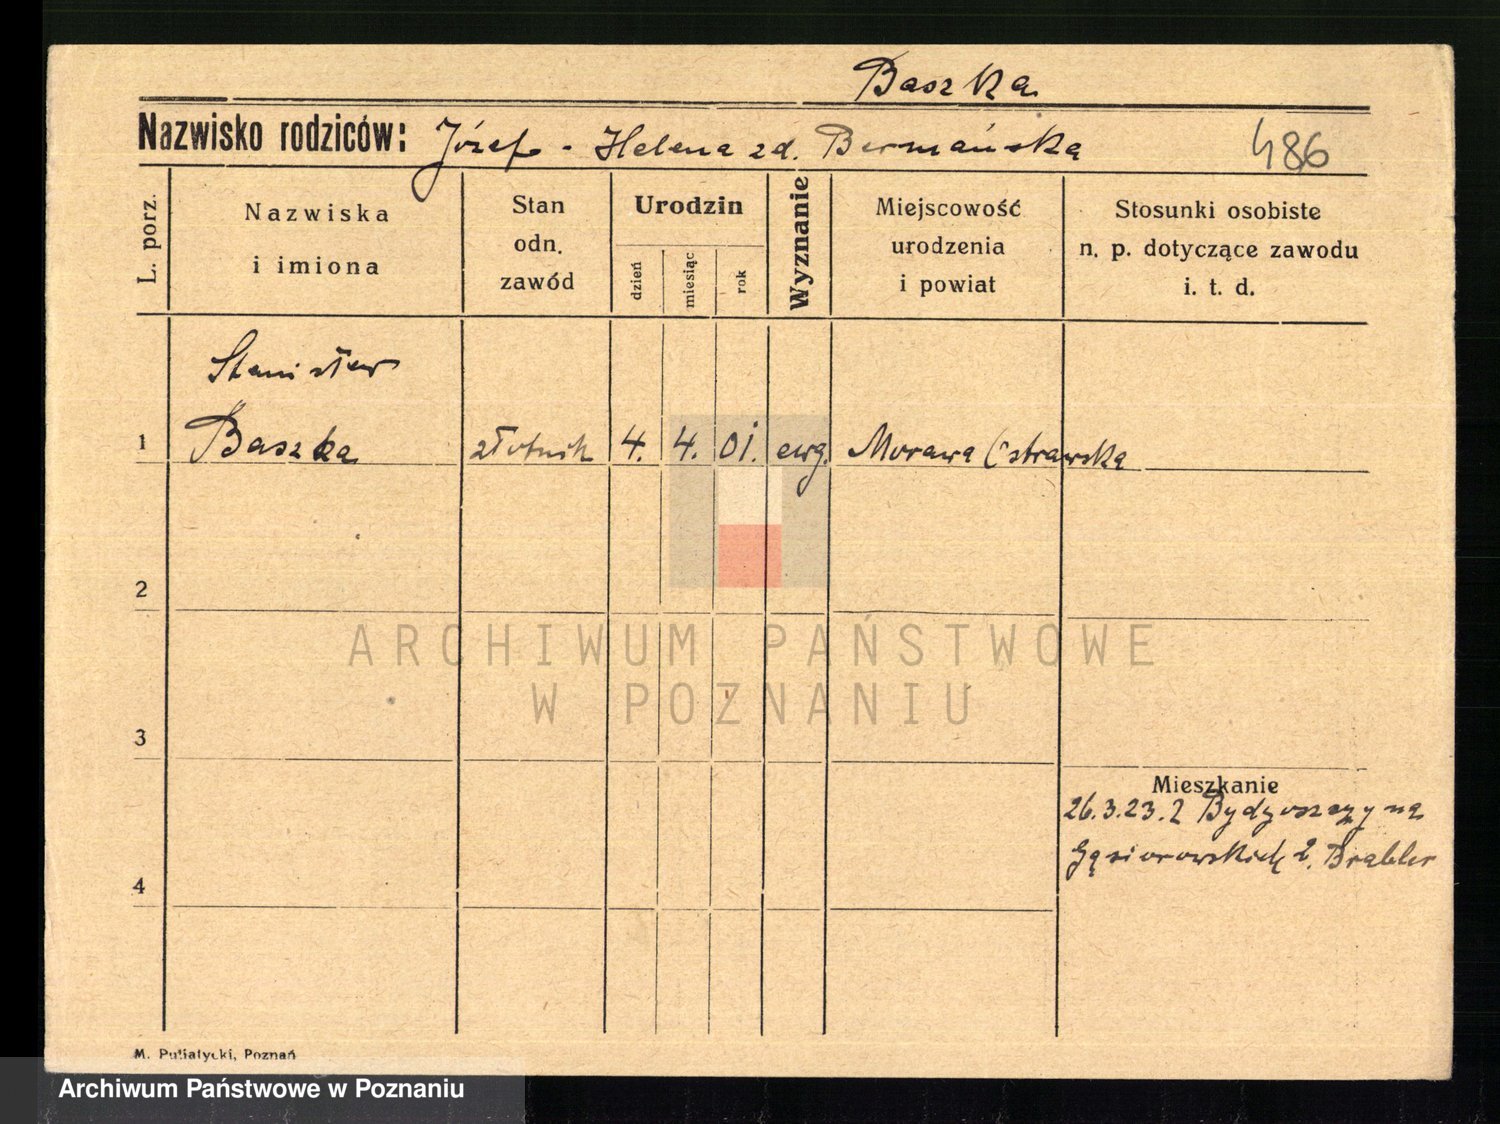 Baszka
Nazwisko rodziców: Józef - Helena zd. Bermańska 486
L. porz.
Nazwiska
i imiona
Stan
odn.
zawód
Urodzin
dzień
miesiąc
rok
Wyznanie
Miejscowość
urodzenia
i powiat
Stosunki osobiste
n. p. dotyczące zawodu
i. t. d.
Stanisław
1 Baszka złotnik 4. 4. 01. ewg. Morawa Ostrawska
2
ARCHIWUM PAŃSTWOWE
W POZNANIU
3
Mieszkanie
26.3.23. z Bydgoszczy na
Gąsiorowskich 2. Brabler
4
M. Putiatycki, Poznań
Archiwum Państwowe w Poznaniu